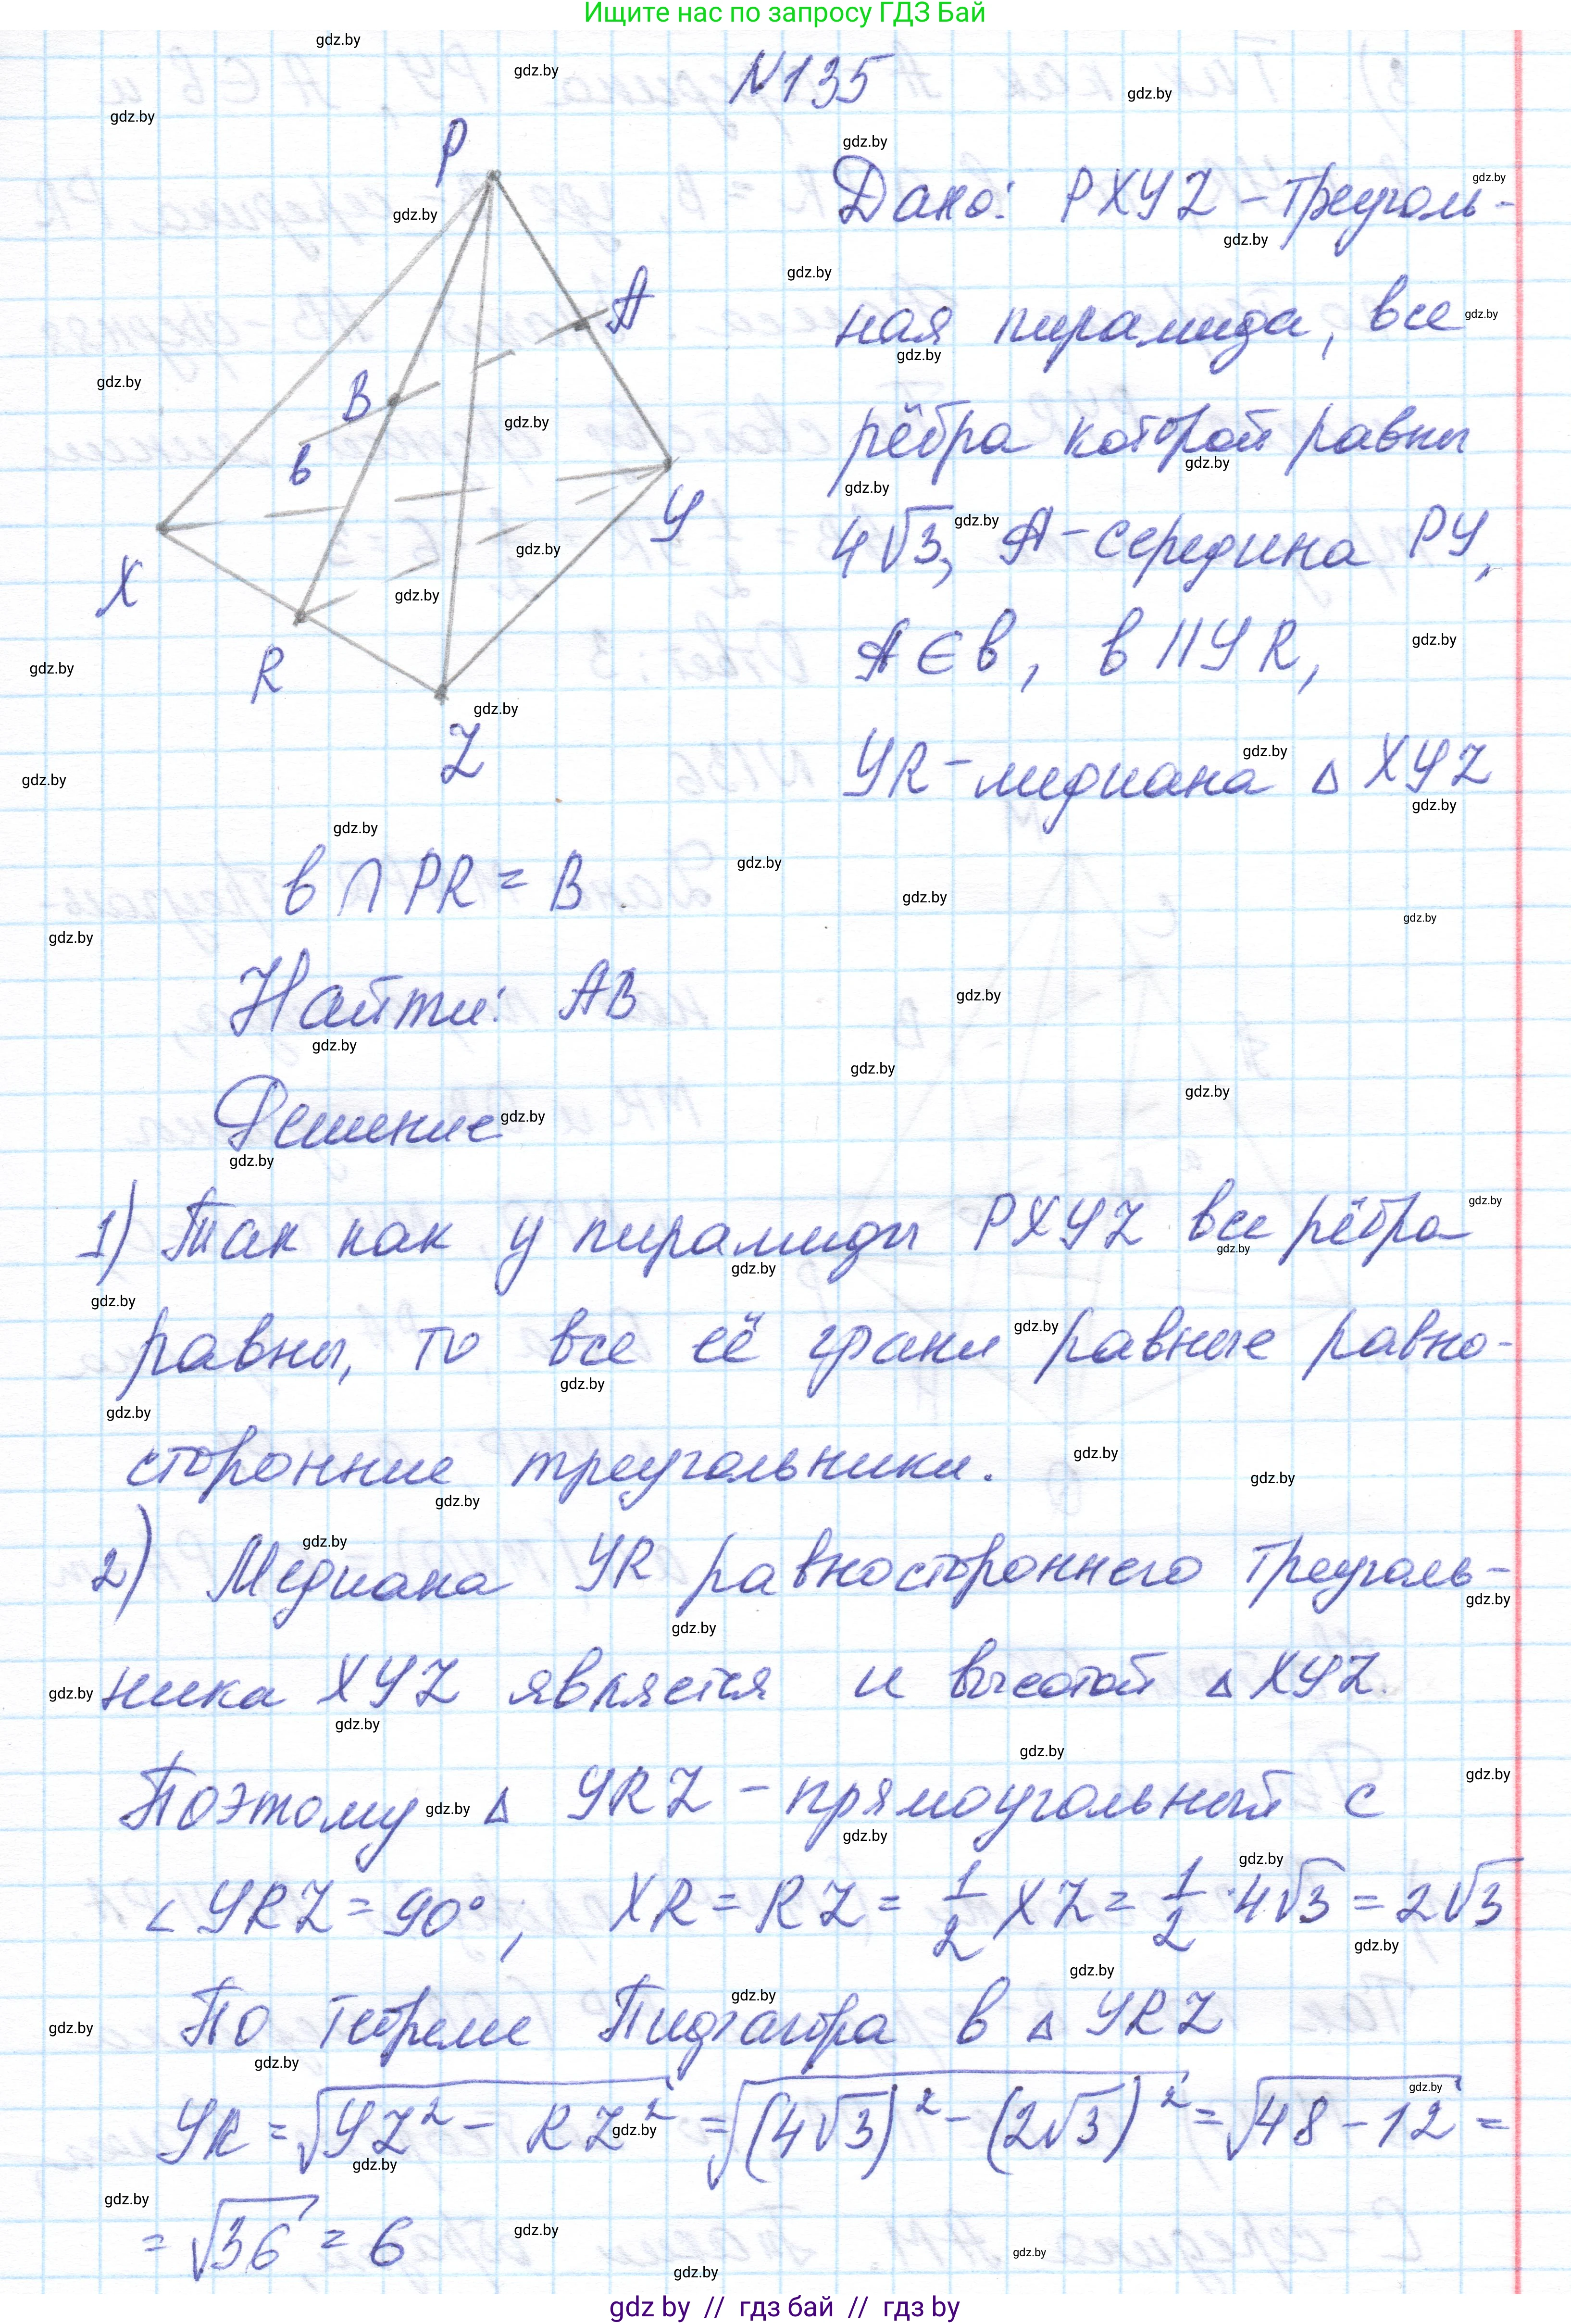 Ищите нас по запросу ГДЗ Бай
N135
P
A
B
в
X
У
R
Z
Дано: PXYZ - треуголь-
ная пирамида, все
рёбра которой равны
4√3, A - середина PY,
A ∈ в, в || YR,
YR - медиана △ XYZ
в ∩ PR = B
Найти: AB
Решение
1) Так как у пирамиды PXYZ все рёбра
равны, то все её грани равные равно-
сторонние треугольники.
2) Медиана YR равностороннего треуголь-
ника XYZ является и высотой △ XYZ.
Поэтому △ YRZ - прямоугольный с
∠ YRZ = 90°, XR = RZ = 1/2 XZ = 1/2 · 4√3 = 2√3
По теореме Пифагора в △ YRZ
YR = √(YZ² - RZ²) = √((4√3)² - (2√3)²) = √(48 - 12) =
= √36 = 6
gdz by // гдз бай // гдз by